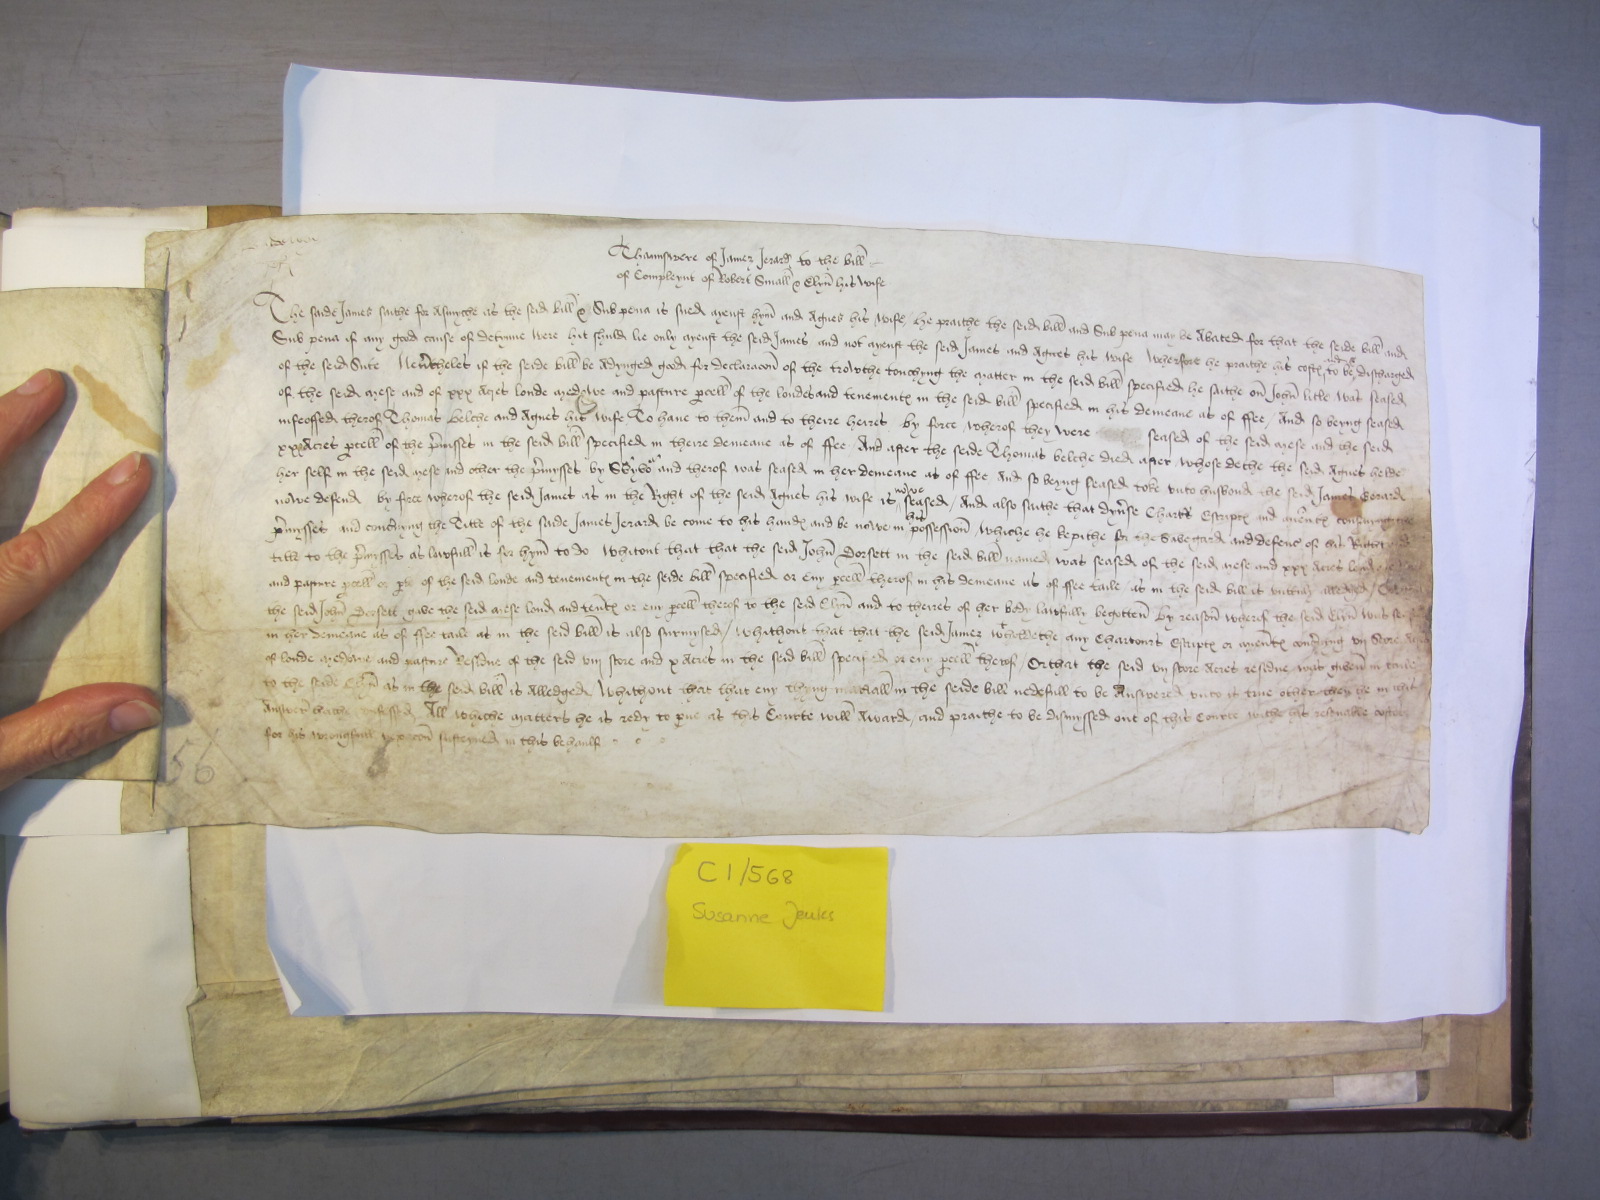 Thaunswere of James Jerard to the bill
of Compleynt of Robert Small & Elyn his wife
The saide James saithe for Asmyche as the seid bill & Sub pena is sued ayenst hym and Agnes his wife / he praithe the seid bill and Sub pena may be Abated for that the seide bill and
Sub pena if any good cause of detynue were hit shuld lie only ayenst the seid James and not ayenst the seid James and Agnes his wife wherfore he praithe his costes and to be discharged
of the seid Sute Nevertheles if the seide bill be Adjuged good for declaracon of the trowthe touchyng the matter in the seid bill specified he saithe on John litle was seased
of the seid mese and of xxx Acres londe medowe and pasture pcell of the londes and tenementes in the seid bill specified in his demeane as of ffee / And so beyng seased
infeoffed therof Thomas Belche and Agnes his wife To have to them and to theire heires by force wherof they were seased of the seid mese and the seid
xxx Acres pcell of the pmisses in the seid bill specified in theire demeane as of ffee And after the seide Thomas belche died after whose dethe the seid Agnes helde
her self in the seid mese and other the pmysses by and therof was seased in her demeane as of ffee And so beyng seased toke unto husbond the seid James Gerard
nowe defend by force wherof the seid James as in the Right of the seid Agnes his wife is nowe seased / And also saithe that dyvse Chartes Escriptes and
pmysses and concernyng the Title of the saide James Jerard be come to his handes and be nowe in his possession whiche he kepithe for the Savegard and defenc of his Right and
title to the pmysses as lawfull is for hym to do Without that that the seid John Dorsett in the seid bill named was seased of the seid mese and xxx Acres lond
and pasture pcell or pte of the seid londe and tenementes in the seide bill specefied or eny pcell therof in his demeane as of ffee taile as in the seid bill is alledged /
the seid John Dorsett gave the seid mese lond and tentes or eny pcell therof to the seid Elyn and to theires of her body lawfully begotten by reason wherof the seid Elyn was
in her demeane as of ffee taile as in the seid bill is also surmysed / Whithout that that the seid James any Chartours Escriptes or concernyng vij Score
of londe medowe and pasture Residue of the seid viij score and x Acres in the seid bill specified or eny pcell therof / Or that the seid vij score Acres residue was given in taile
to the seide Elyn as in the seid bill is Alledged Whithout that that eny thyng in the seide bill nedefull to be Answered unto is true other then he in this
Answer hathe confessed All whiche matters he is redy to pve as this Courte will Award and praithe to be dismyssed out of this Courte withe his resonable costes
for his wrongfull in this behaulf
56
C1/568
Susanne Jenks